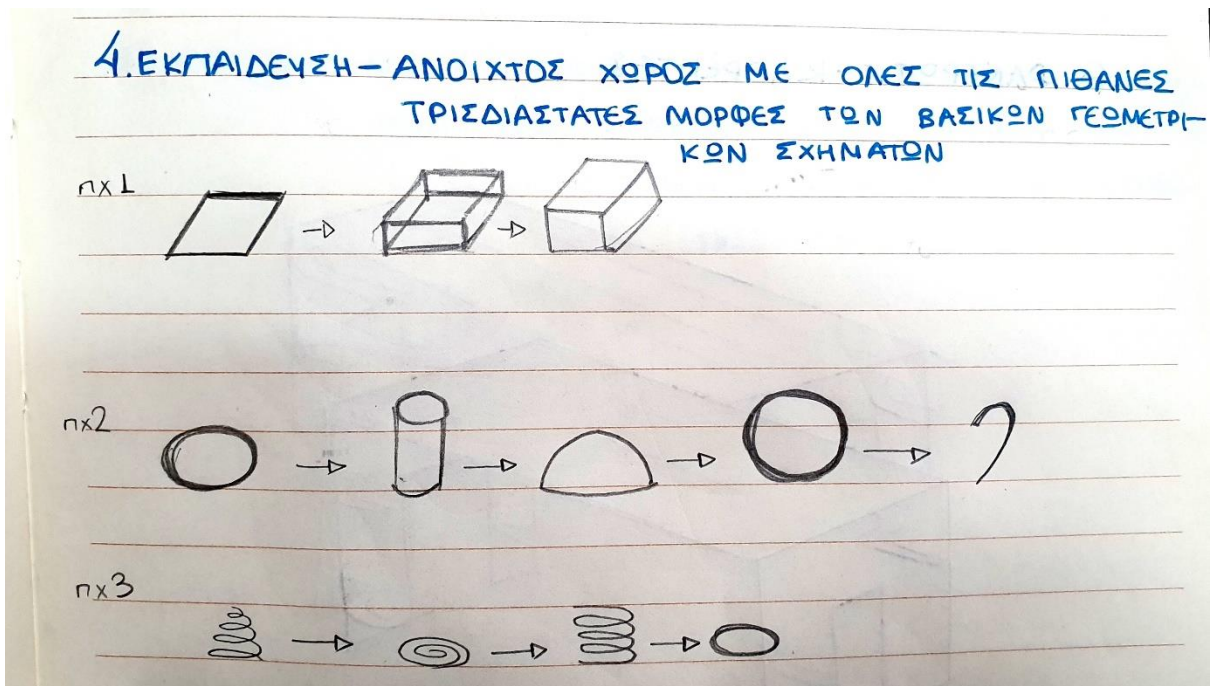 4. ΕΚΠΑΙΔΕΥΣΗ - ΑΝΟΙΧΤΟΣ ΧΩΡΟΣ ΜΕ ΟΛΕΣ ΤΙΣ ΠΙΘΑΝΕΣ
ΤΡΙΣΔΙΑΣΤΑΤΕΣ ΜΟΡΦΕΣ ΤΩΝ ΒΑΣΙΚΩΝ ΓΕΩΜΕΤΡΙ-
ΚΩΝ ΣΧΗΜΑΤΩΝ
πχ 1
πχ2
πχ3